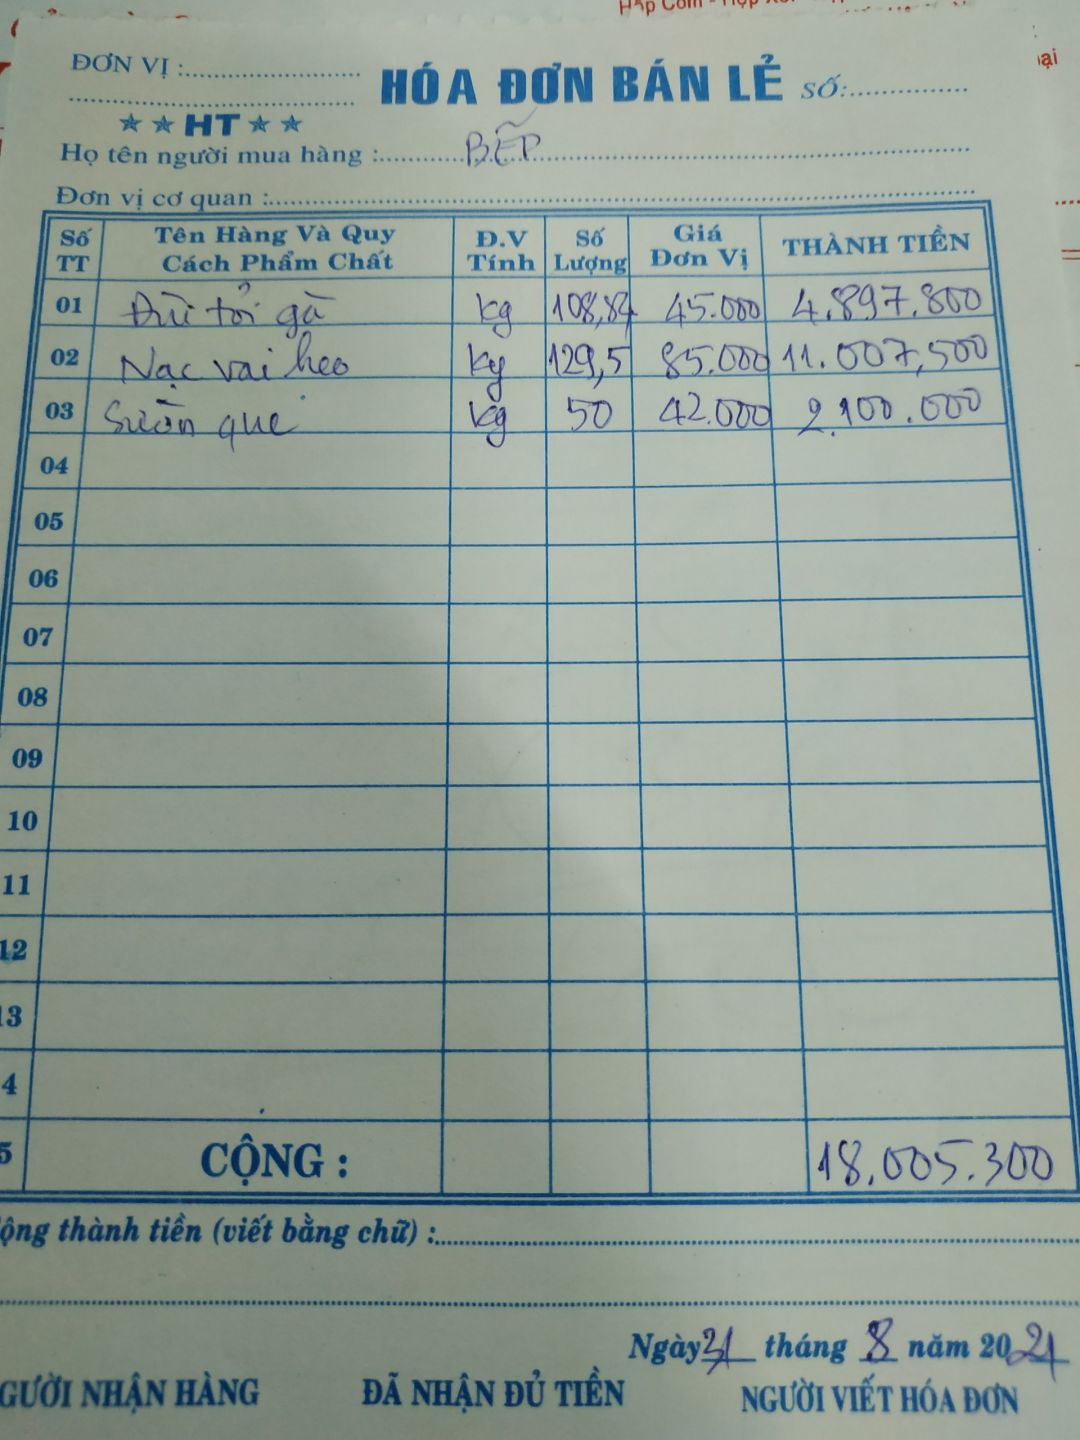 Hộp Cơm - Hộp Xố
ại
ĐƠN VỊ :
HÓA ĐƠN BÁN LẺ SỐ:
HT
Họ tên người mua hàng : BẾP
Đơn vị cơ quan :
Số TT Tên Hàng Và Quy Cách Phẩm Chất Đ.V Tính Số Lượng Giá Đơn Vị THÀNH TIỀN
01 Đùi tỏi gà kg 108,84 45.000 4.897.800
02 Nạc vai heo kg 129,5 85.000 11.007,500
03 Sườn que kg 50 42.000 2.100.000
04
05
06
07
08
09
10
11
12
13
4
5 CỘNG : 18.005.300
ộng thành tiền (viết bằng chữ) :
Ngày 31 tháng 8 năm 2021
GƯỜI NHẬN HÀNG ĐÃ NHẬN ĐỦ TIỀN NGƯỜI VIẾT HÓA ĐƠN